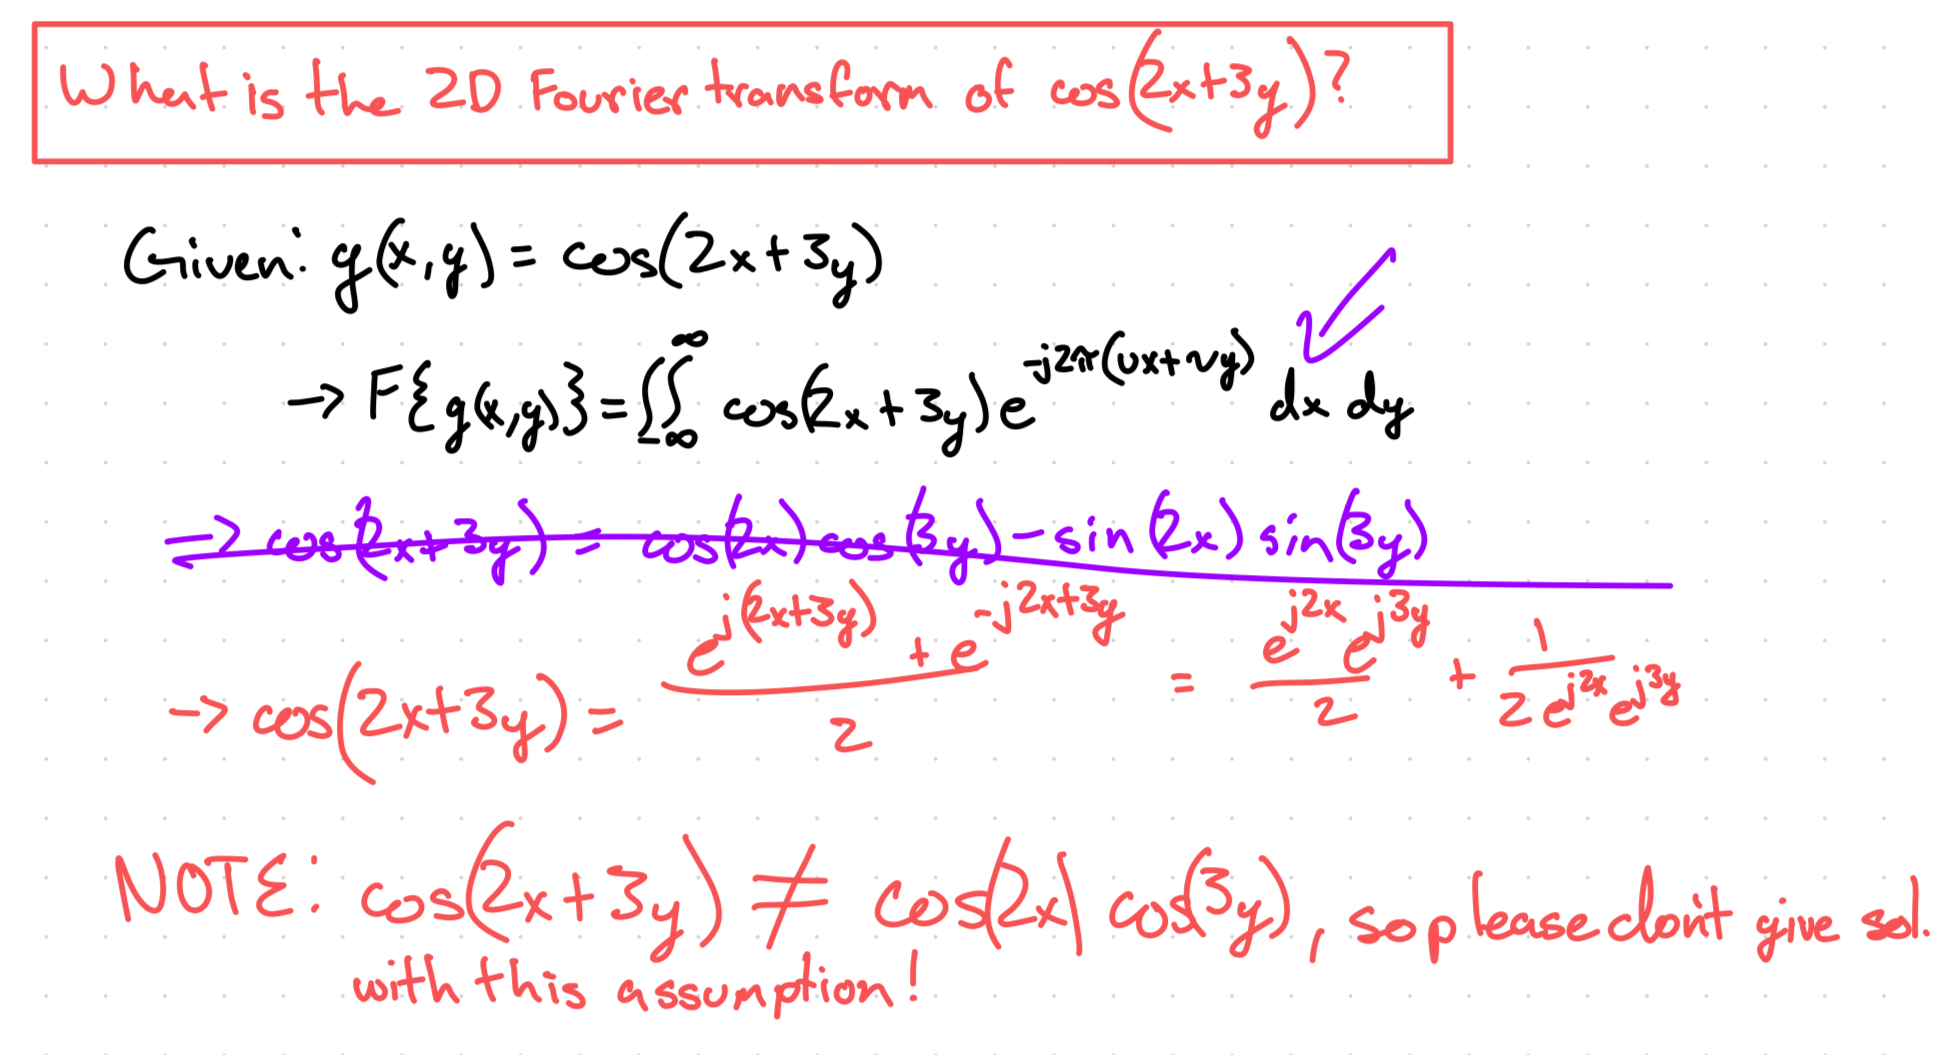 What is the 2D Fourier transform of cos(2x+3y)?
Given: g(x,y) = cos(2x+3y)
→ F{g(x,y)} = ∬_{-∞}^{∞} cos(2x+3y) e^{-j2π(ux+vy)} dx dy
→ cos(2x+3y) = cos(2x) cos(3y) - sin(2x) sin(3y)
→ cos(2x+3y) = (e^{j(2x+3y)} + e^{-j2x+3y})/2 = (e^{j2x} e^{j3y})/2 + 1/(2 e^{j2x} e^{j3y})
NOTE: cos(2x+3y) ≠ cos(2x) cos(3y), so please don't give sol.
with this assumption!